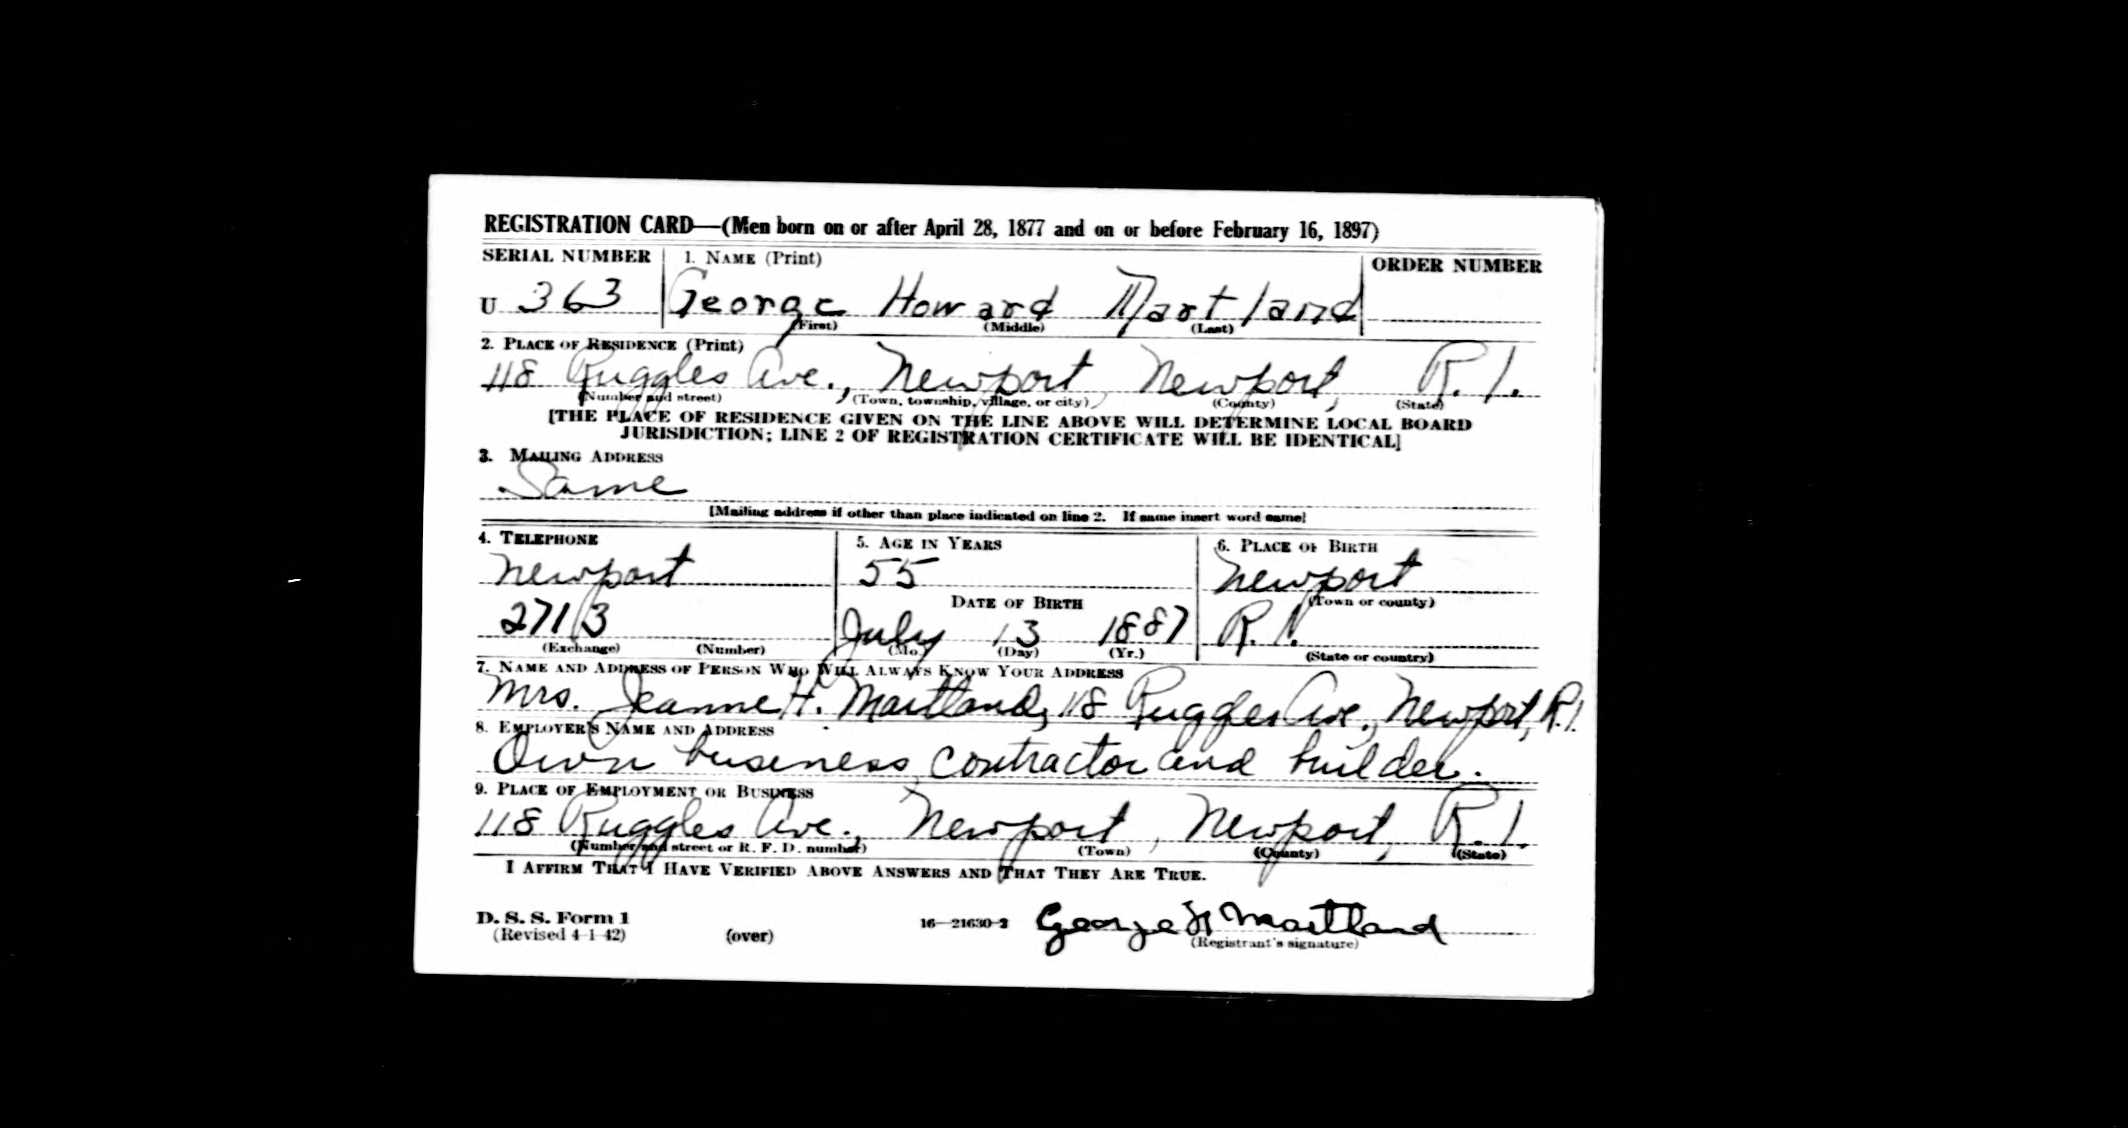 REGISTRATION CARD—(Men born on or after April 28, 1877 and on or before February 16, 1897)
SERIAL NUMBER 1. NAME (Print) ORDER NUMBER
U 363 George Howard Martland
(First) (Middle) (Last)
2. PLACE OF RESIDENCE (Print)
118 Ruggles Ave., Newport, Newport, R.I.
(Number and street) (Town, township, village, or city) (County) (State)
[THE PLACE OF RESIDENCE GIVEN ON THE LINE ABOVE WILL DETERMINE LOCAL BOARD
JURISDICTION; LINE 2 OF REGISTRATION CERTIFICATE WILL BE IDENTICAL]
3. MAILING ADDRESS
Same
[Mailing address if other than place indicated on line 2. If same insert word same]
4. TELEPHONE 5. AGE IN YEARS 6. PLACE OF BIRTH
Newport 55 Newport
DATE OF BIRTH (Town or county)
2713 July 13 1887 R.I.
(Exchange) (Number) (Mo.) (Day) (Yr.) (State or country)
7. NAME AND ADDRESS OF PERSON WHO WILL ALWAYS KNOW YOUR ADDRESS
Mrs. Jeanne H. Martland, 118 Ruggles Ave., Newport, R.I.
8. EMPLOYER'S NAME AND ADDRESS
Own business, contractor and builder.
9. PLACE OF EMPLOYMENT OR BUSINESS
118 Ruggles Ave., Newport, Newport, R.I.
(Number and street or R. F. D. number) (Town) (County) (State)
I AFFIRM THAT I HAVE VERIFIED ABOVE ANSWERS AND THAT THEY ARE TRUE.
D. S. S. Form 1
(Revised 4-1-42) (over) 16—21630-2 George H Martland
(Registrant's signature)